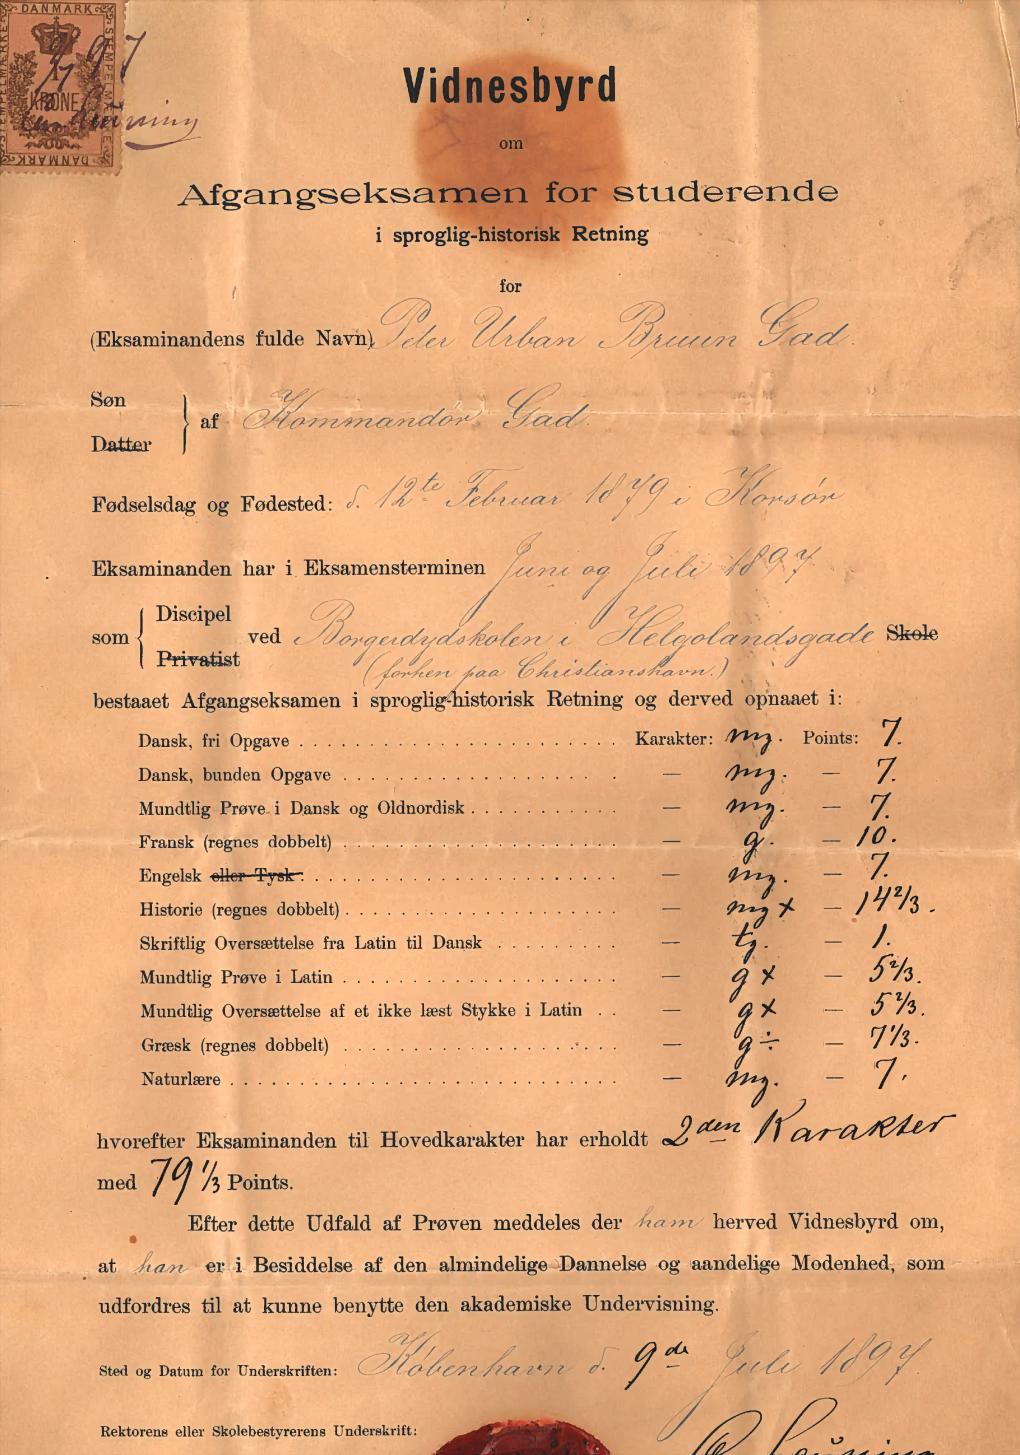 DANMARK
STEMPELMÆRKE
STEMPELMÆRKE
1
KRONE
DANMARK
9/7 97
Vidnesbyrd
om
Afgangseksamen for studerende
i sproglig-historisk Retning
for
(Eksaminandens fulde Navn) Peter Urban Bruun Gad.
Søn
Datter
af Kommandør Gad.
Fødselsdag og Fødested: d. 12te Februar 1879 i Korsør
Eksaminanden har i Eksamensterminen Juni og Juli 1897
Discipel
som ved Borgerdydskolen i Helgolandsgade Skole
Privatist
(forhen paa Christianshavn.)
bestaaet Afgangseksamen i sproglig-historisk Retning og derved opnaaet i:
Dansk, fri Opgave . . . . . Karakter: mg. Points: 7.
Dansk, bunden Opgave . . . . . — mg. — 7.
Mundtlig Prøve i Dansk og Oldnordisk . . . . . — mg. — 7.
Fransk (regnes dobbelt) . . . . . — g. — 10.
Engelsk eller Tysk . . . . . — mg. — 7.
Historie (regnes dobbelt) . . . . . — mg x — 14 2/3.
Skriftlig Oversættelse fra Latin til Dansk . . . . . — tg. — 1.
Mundtlig Prøve i Latin . . . . . — g x — 5 2/3.
Mundtlig Oversættelse af et ikke læst Stykke i Latin . . — g x — 5 2/3.
Græsk (regnes dobbelt) . . . . . — g ÷ — 7 1/3.
Naturlære . . . . . — mg. — 7.
hvorefter Eksaminanden til Hovedkarakter har erholdt 2den Karakter
med 79 1/3 Points.
Efter dette Udfald af Prøven meddeles der ham herved Vidnesbyrd om,
at han er i Besiddelse af den almindelige Dannelse og aandelige Modenhed, som
udfordres til at kunne benytte den akademiske Undervisning.
Sted og Datum for Underskriften: København d. 9de Juli 1897
Rektorens eller Skolebestyrerens Underskrift: